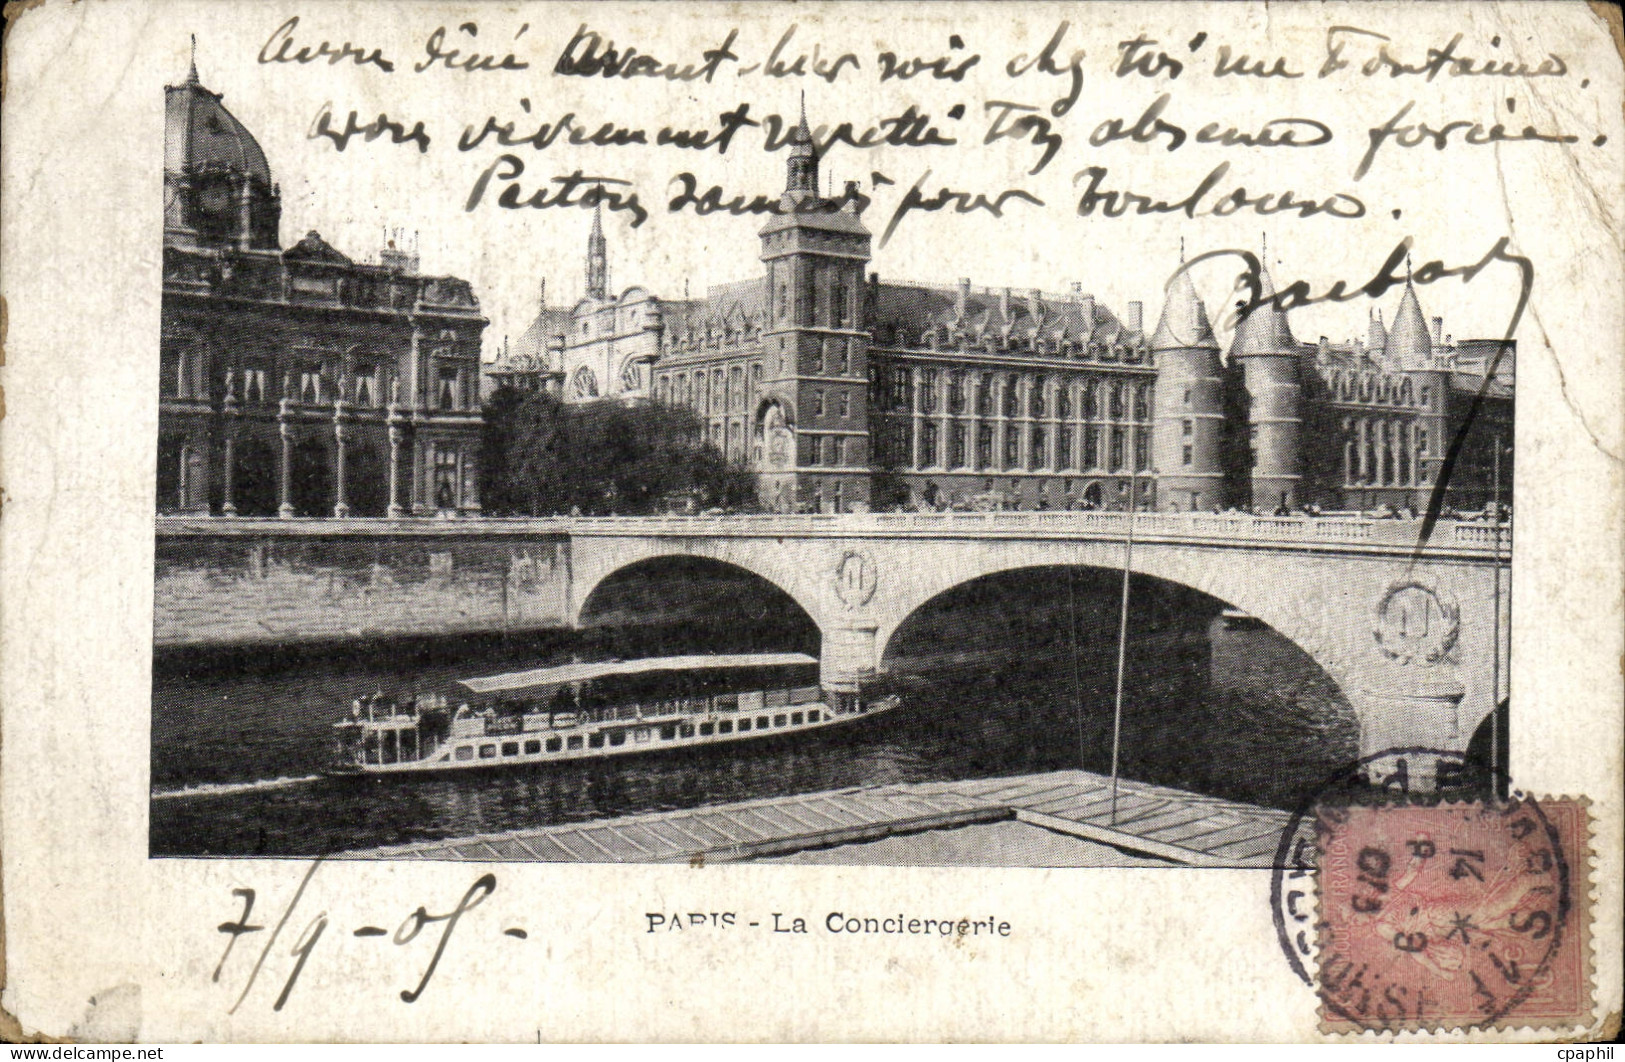 Avons dîné Avant-hier soir chez toi rue Fontaine.
Avons vivement regretté Ton absence forcée.
Partons samedi pour Toulouse.
Barbot
7/9-05-
PARIS - La Conciergerie
PARIS
14
*
9
delcampe.net
cpaphil